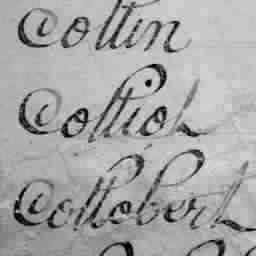 Collin
Colliol
Collobert